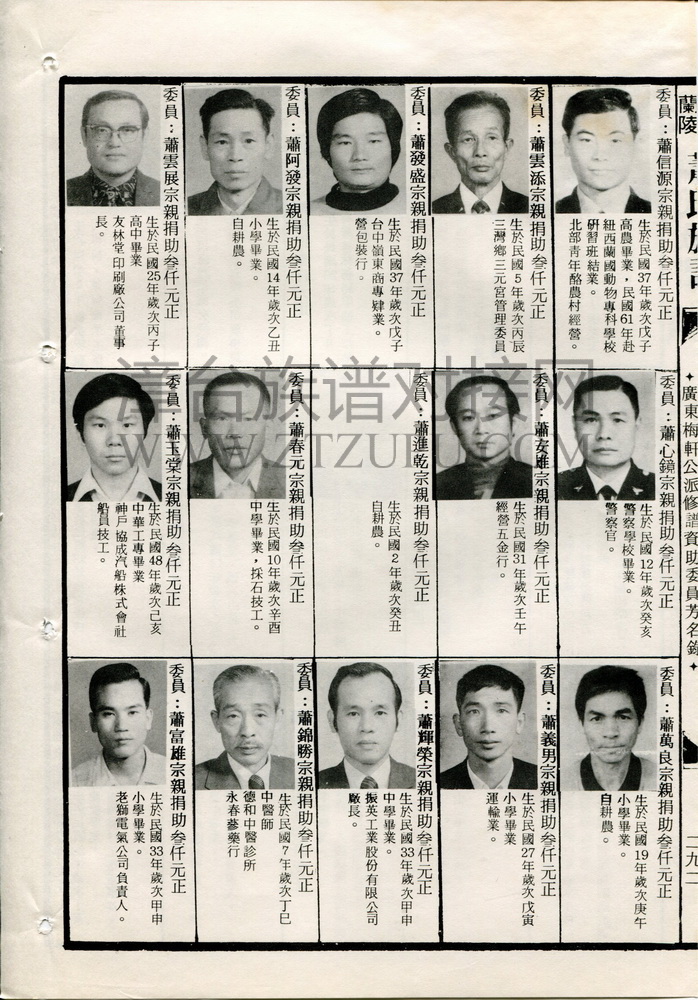 蘭陵
廣東梅軒公派修譜資助委員芳名錄
委員：蕭信源宗親捐助叄仟元正
生於民國37年歲次戊子
高農畢業，民國61年赴
紐西蘭國動物專科學校
研習班結業。
北部靑年酪農村經營。
委員：蕭雲添宗親捐助叄仟元正
生於民國5年歲次丙辰
三灣鄉三元宮管理委員
委員：蕭發盛宗親捐助叄仟元正
生於民國37年歲次戊子
台中嶺東商專肄業。
營包裝行。
委員：蕭阿發宗親捐助叄仟元正
生於民國14年歲次乙丑
小學畢業。
自耕農。
委員：蕭雲展宗親捐助叄仟元正
生於民國25年歲次丙子
高中畢業
友林堂印刷廠公司董事
長。
委員：蕭心鏡宗親捐助叄仟元正
生於民國12年歲次癸亥
警察學校畢業。
警察官。
委員：蕭安雄宗親捐助叄仟元正
生於民國31年歲次壬午
經營五金行。
委員：蕭進乾宗親捐助叄仟元正
生於民國2年歲次癸丑
自耕農。
委員：蕭春元宗親捐助叄仟元正
生於民國10年歲次辛酉
中學畢業，採石技工。
委員：蕭玉棠宗親捐助叄仟元正
生於民國48年歲次己亥
中華工專畢業
神戶協成汽船株式會社
船員技工。
委員：蕭萬良宗親捐助叄仟元正
生於民國19年歲次庚午
小學畢業。
自耕農。
委員：蕭義男宗親捐助叄仟元正
生於民國27年歲次戊寅
小學畢業
運輸業。
委員：蕭輝榮宗親捐助叄仟元正
生於民國33年歲次甲申
中學畢業。
振英工業股份有限公司
廠長。
委員：蕭錦勝宗親捐助叄仟元正
生於民國7年歲次丁巳
中醫師
德和中醫診所
永春蔘藥行
委員：蕭富雄宗親捐助叄仟元正
生於民國33年歲次甲申
小學畢業。
老獅電氣公司負責人。
漳台族谱对接网
WWW.ZTZUPU.COM